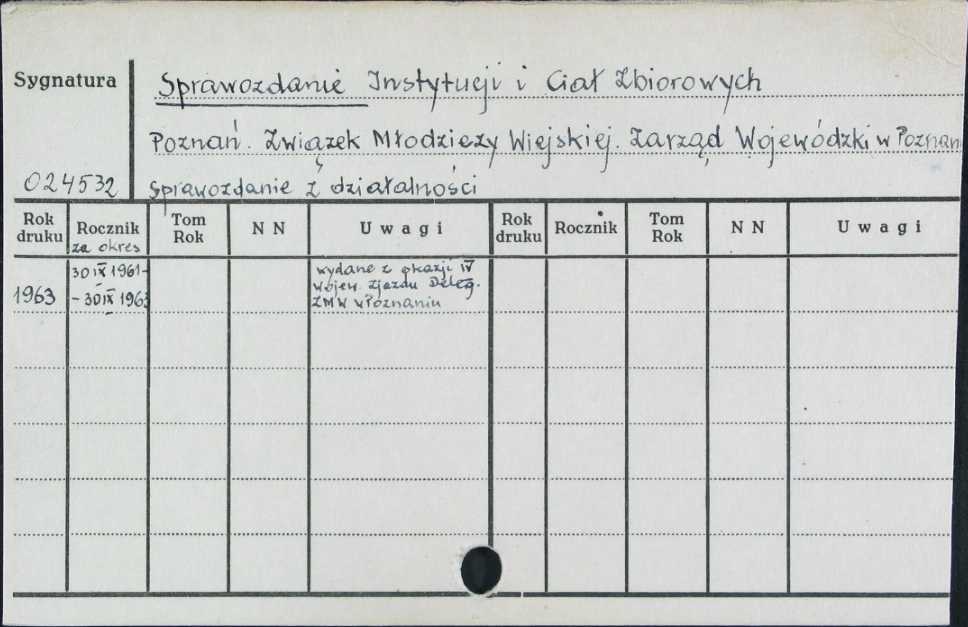 Sygnatura
Sprawozdanie Instytucji i Ciał Zbiorowych
Poznań. Związek Młodzieży Wiejskiej. Zarząd Wojewódzki w Poznan
024532 Sprawozdanie z działalności
Rok druku Rocznik za okres Tom Rok N N Uwagi Rok druku Rocznik Tom Rok N N Uwagi
1963 30 IX 1961-
- 30 IX 1963
wydane z okazji IV
wojew. zjazdu Deleg.
ZMW w Poznaniu